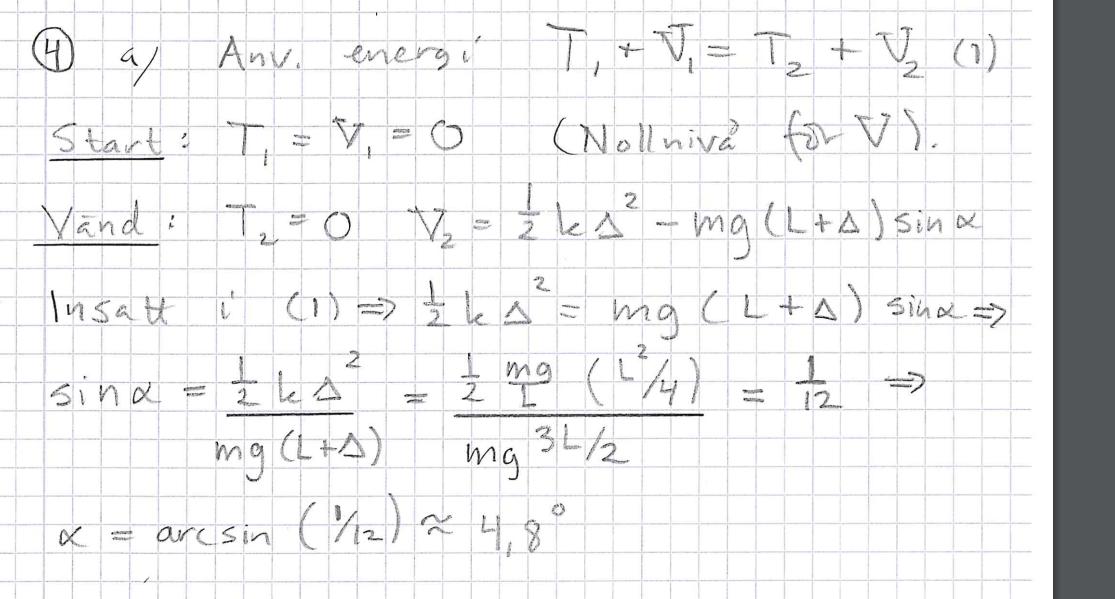 ④ a) Anv. energi T₁ + V₁ = T₂ + V₂ (1)
Start: T₁ = V₁ = 0 (Nollnivå för V).
Vänd: T₂ = 0 V₂ = 1/2 kΔ² - mg(L+Δ) sinα
Insatt i (1) ⇒ 1/2 kΔ² = mg (L+Δ) sinα ⇒
sinα = (1/2 kΔ²)/(mg(L+Δ)) = (1/2 mg/L (L²/4))/(mg 3L/2) = 1/12 ⇒
α = arcsin (1/12) ≈ 4,8°